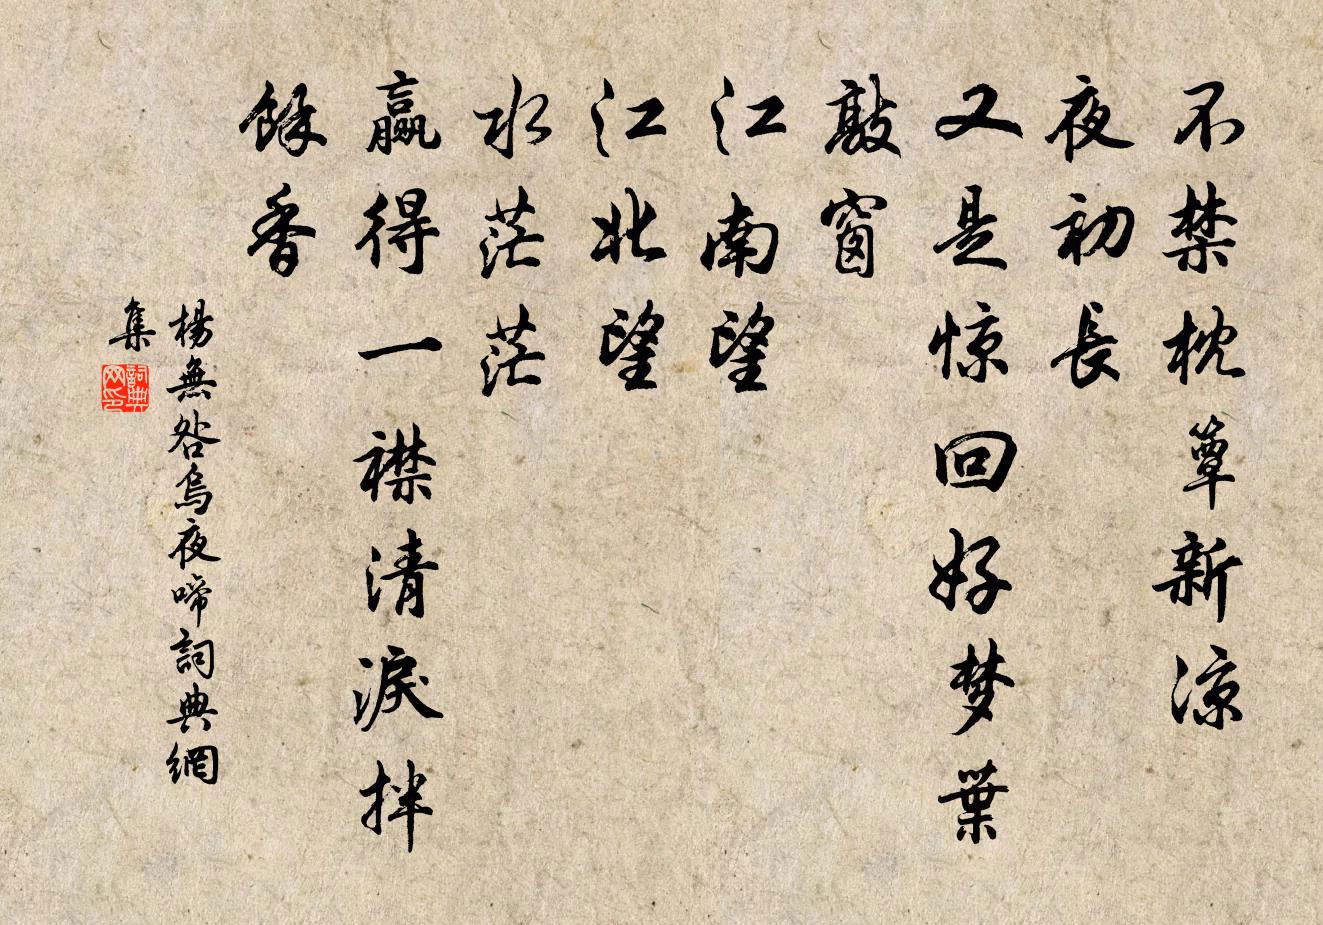 不禁枕簟新涼
夜初長
又是惊回好梦葉
敲窗
江南望
江北望
水茫茫
贏得一襟清淚拌
餘香
楊無咎烏夜啼詞典網
集
詞典
网印